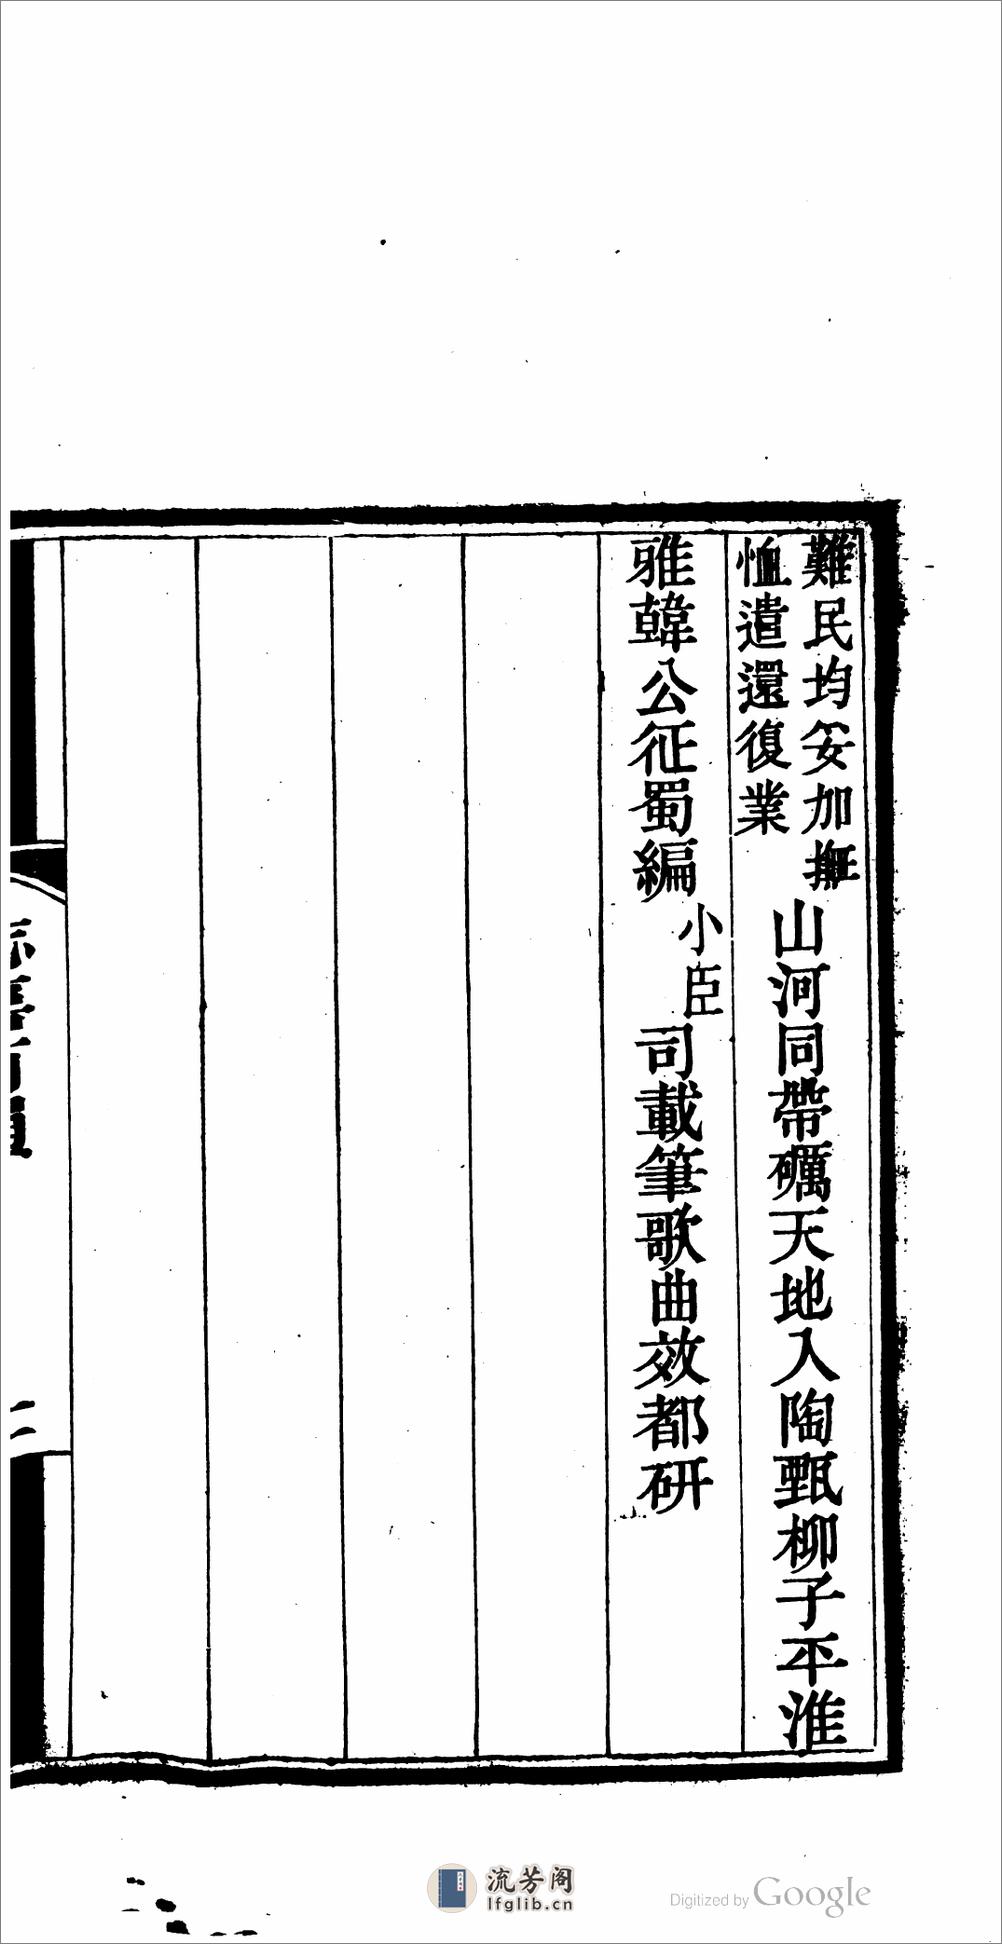 難民均妥加撫
恤遣還復業
山河同帶礪天地入陶甄柳子平淮
雅韓公征蜀編
小臣
司載筆歌曲效都研
二
流芳阁
lfglib.cn
Digitized by Google